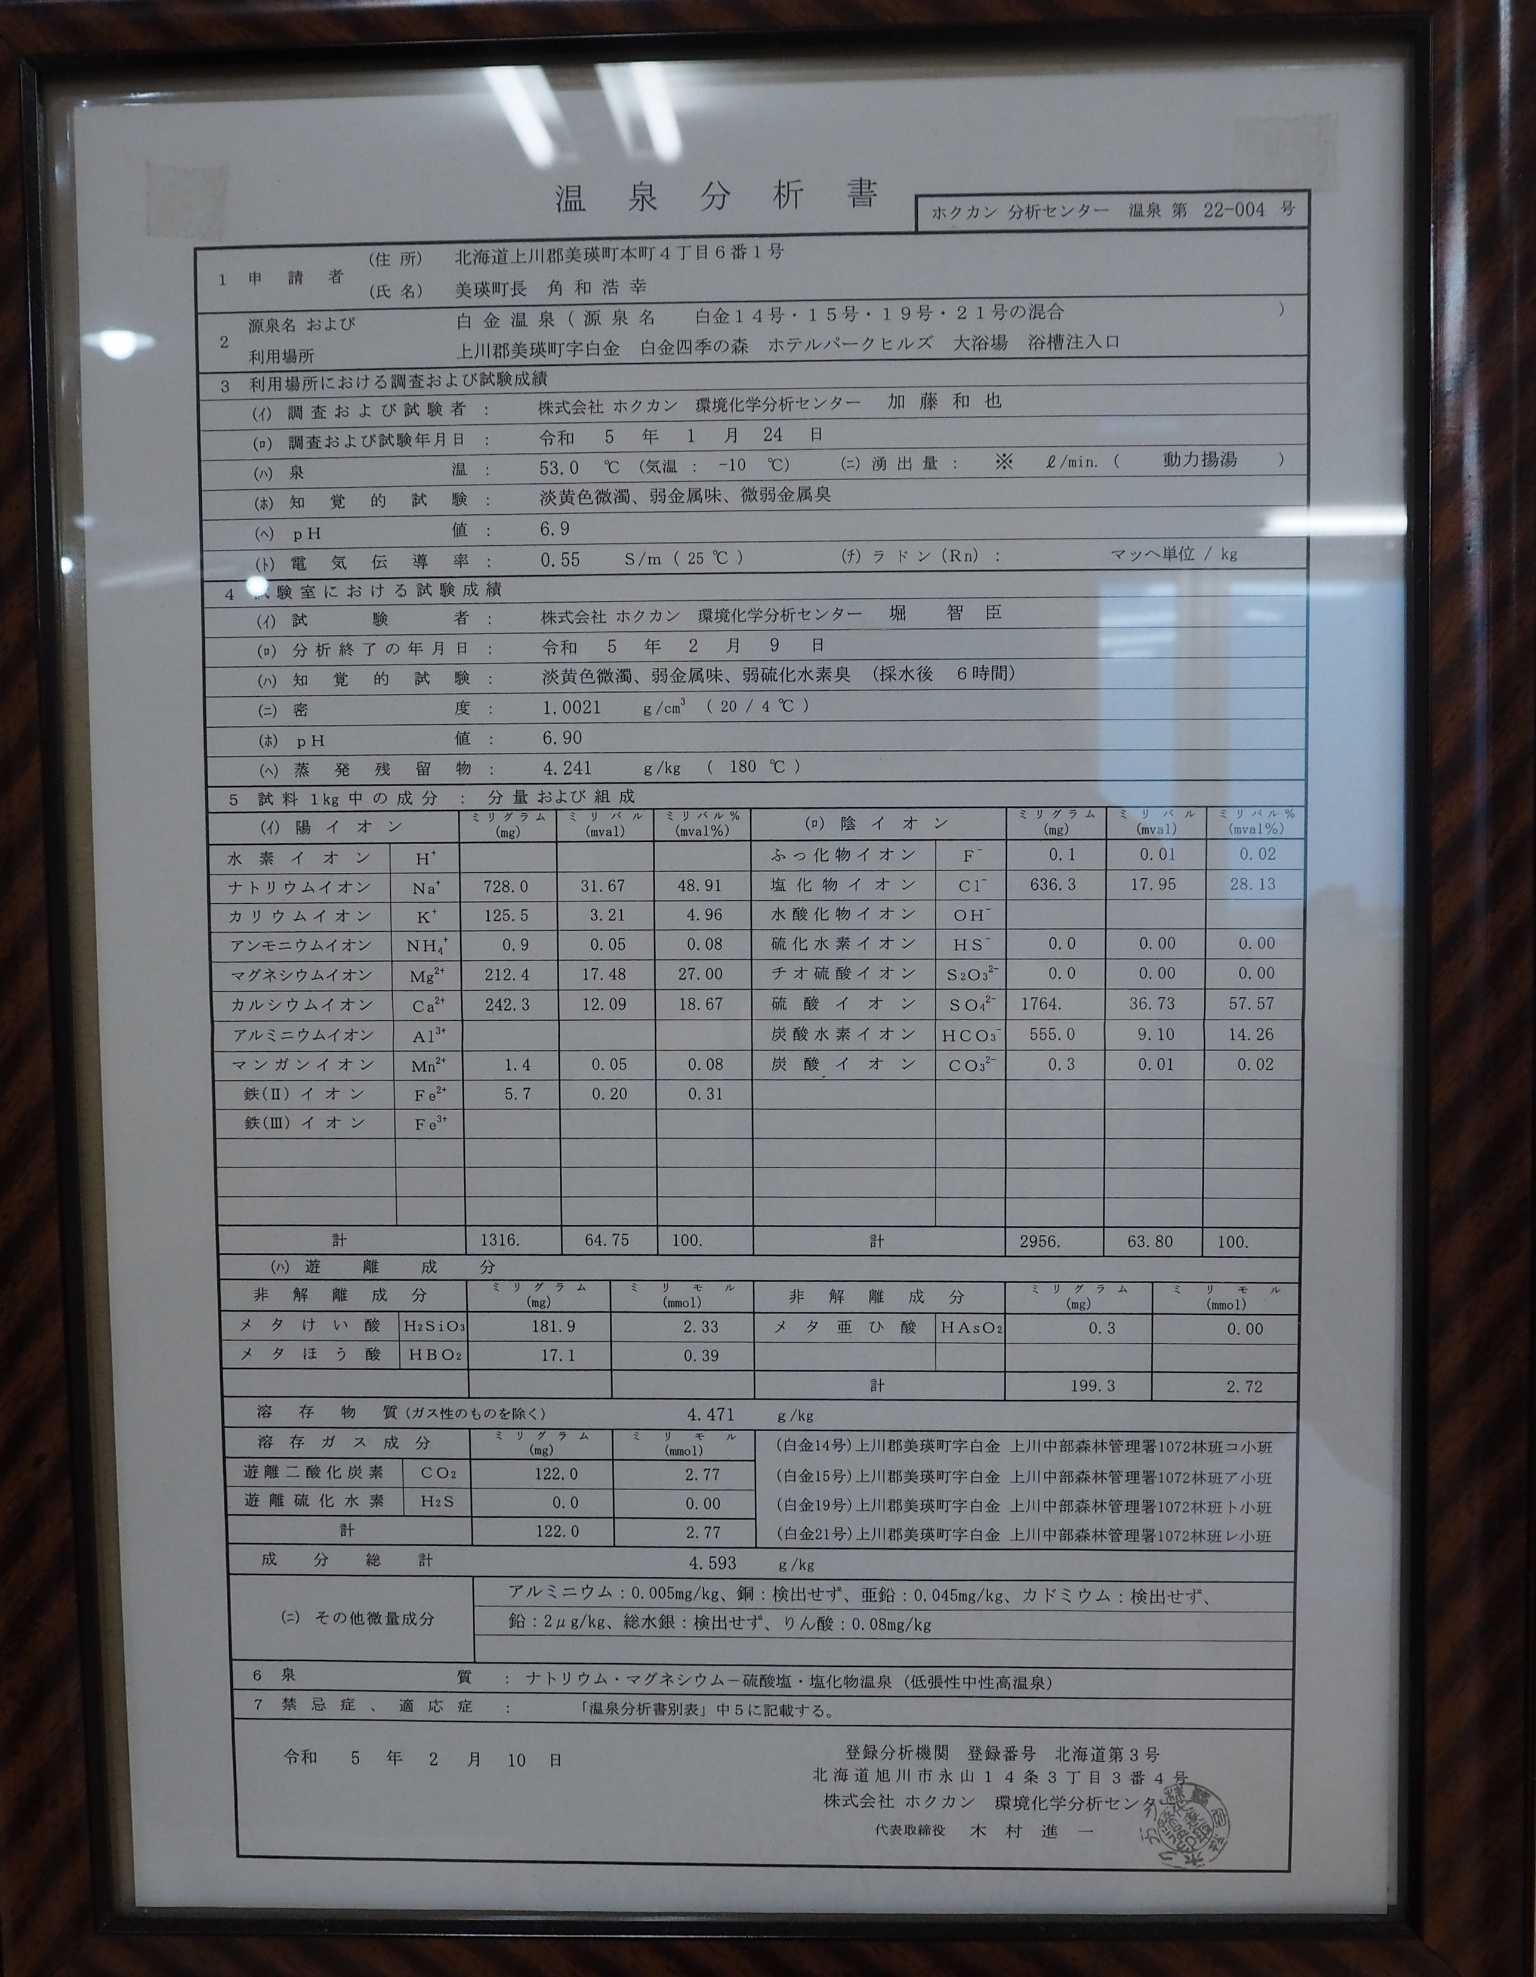 温泉分析書
ホクカン 分析センター 温泉 第 22-004 号
1 申請者 (住所) 北海道上川郡美瑛町本町4丁目6番1号
(氏名) 美瑛町長 角和浩幸
2 源泉名 および 白金温泉(源泉名 白金14号・15号・19号・21号の混合 )
利用場所 上川郡美瑛町字白金 白金四季の森 ホテルパークヒルズ 大浴場 浴槽注入口
3 利用場所における調査および試験成績
(イ) 調査および試験者 : 株式会社 ホクカン 環境化学分析センター 加藤和也
(ロ) 調査および試験年月日 : 令和 5 年 1 月 24 日
(ハ) 泉温 : 53.0 ℃ (気温 : -10 ℃) (ニ) 湧出量 : ※ ℓ/min. ( 動力揚湯 )
(ホ) 知覚的試験 : 淡黄色微濁、弱金属味、微弱金属臭
(ヘ) pH値 : 6.9
(ト) 電気伝導率 : 0.55 S/m ( 25 ℃ ) (チ) ラドン(Rn) : マッヘ単位 / kg
4 試験室における試験成績
(イ) 試験者 : 株式会社 ホクカン 環境化学分析センター 堀 智臣
(ロ) 分析終了の年月日 : 令和 5 年 2 月 9 日
(ハ) 知覚的試験 : 淡黄色微濁、弱金属味、弱硫化水素臭 (採水後 6時間)
(ニ) 密度 : 1.0021 g/cm³ ( 20 / 4 ℃ )
(ホ) pH値 : 6.90
(ヘ) 蒸発残留物 : 4.241 g/kg ( 180 ℃ )
5 試料 1kg 中の成分 : 分量および組成
(イ) 陽イオン ミリグラム(mg) ミリバル(mval) ミリバル%(mval%) (ロ) 陰イオン ミリグラム(mg) ミリバル(mval) ミリバル%(mval%)
水素イオン H⁺ ふっ化物イオン F⁻ 0.1 0.01 0.02
ナトリウムイオン Na⁺ 728.0 31.67 48.91 塩化物イオン Cl⁻ 636.3 17.95 28.13
カリウムイオン K⁺ 125.5 3.21 4.96 水酸化物イオン OH⁻
アンモニウムイオン NH₄⁺ 0.9 0.05 0.08 硫化水素イオン HS⁻ 0.0 0.00 0.00
マグネシウムイオン Mg²⁺ 212.4 17.48 27.00 チオ硫酸イオン S₂O₃²⁻ 0.0 0.00 0.00
カルシウムイオン Ca²⁺ 242.3 12.09 18.67 硫酸イオン SO₄²⁻ 1764. 36.73 57.57
アルミニウムイオン Al³⁺ 炭酸水素イオン HCO₃⁻ 555.0 9.10 14.26
マンガンイオン Mn²⁺ 1.4 0.05 0.08 炭酸イオン CO₃²⁻ 0.3 0.01 0.02
鉄(II)イオン Fe²⁺ 5.7 0.20 0.31
鉄(III)イオン Fe³⁺
計 1316. 64.75 100. 計 2956. 63.80 100.
(ハ) 遊離成分
非解離成分 ミリグラム(mg) ミリモル(mmol) 非解離成分 ミリグラム(mg) ミリモル(mmol)
メタけい酸 H₂SiO₃ 181.9 2.33 メタ亜ひ酸 HAsO₂ 0.3 0.00
メタほう酸 HBO₂ 17.1 0.39
計 199.3 2.72
溶存物質(ガス性のものを除く) 4.471 g/kg
溶存ガス成分 ミリグラム(mg) ミリモル(mmol) (白金14号)上川郡美瑛町字白金 上川中部森林管理署1072林班コ小班
遊離二酸化炭素 CO₂ 122.0 2.77 (白金15号)上川郡美瑛町字白金 上川中部森林管理署1072林班ア小班
遊離硫化水素 H₂S 0.0 0.00 (白金19号)上川郡美瑛町字白金 上川中部森林管理署1072林班ト小班
計 122.0 2.77 (白金21号)上川郡美瑛町字白金 上川中部森林管理署1072林班レ小班
成分総計 4.593 g/kg
(ニ) その他微量成分 アルミニウム:0.005mg/kg、銅:検出せず、亜鉛:0.045mg/kg、カドミウム:検出せず、
鉛:2μg/kg、総水銀:検出せず、りん酸:0.08mg/kg
6 泉質 : ナトリウム・マグネシウム−硫酸塩・塩化物温泉 (低張性中性高温泉)
7 禁忌症、適応症 : 「温泉分析書別表」中5に記載する。
令和 5 年 2 月 10 日 登録分析機関 登録番号 北海道第3号
北海道旭川市永山14条3丁目3番4号
株式会社 ホクカン 環境化学分析センタ
代表取締役 木村進一